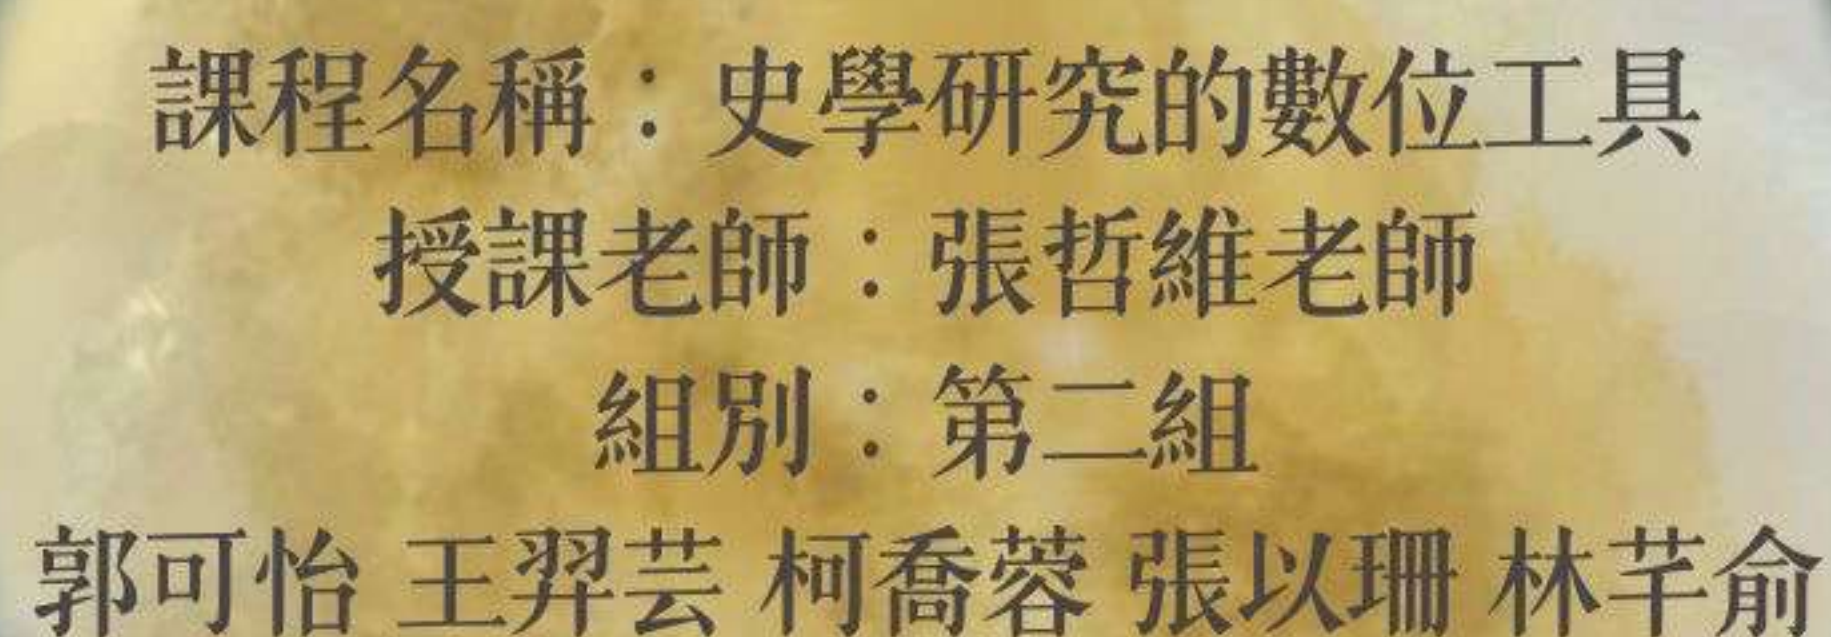 課程名稱：史學研究的數位工具
授課老師：張哲維老師
組別：第二組
郭可怡 王羿芸 柯喬蓉 張以珊 林芊俞